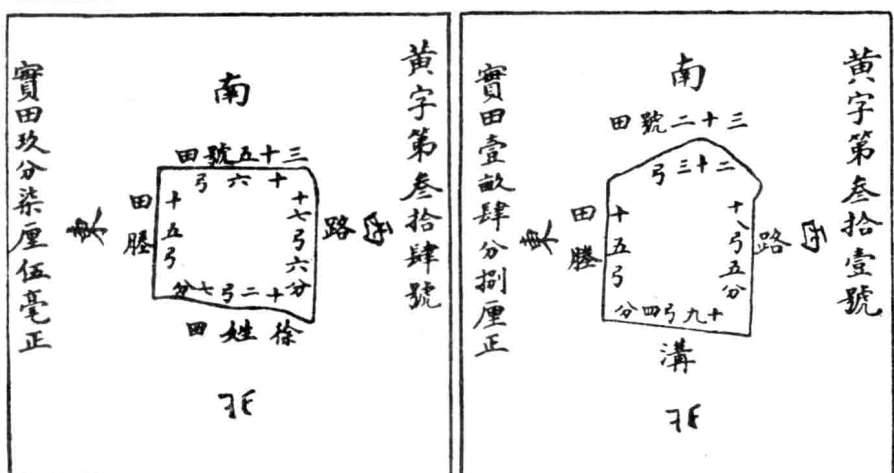 黄字第叁拾壹號
南
三十二號田
二十三弓
十八弓五分
路
西
十五弓
田塍
東
十九弓四分
溝
北
實田壹畝肆分捌厘正
黄字第叁拾肆號
南
三十五號田
十六弓
十七弓六分
路
西
十五弓
田塍
東
十二弓七分
徐姓田
北
實田玖分柒厘伍毫正